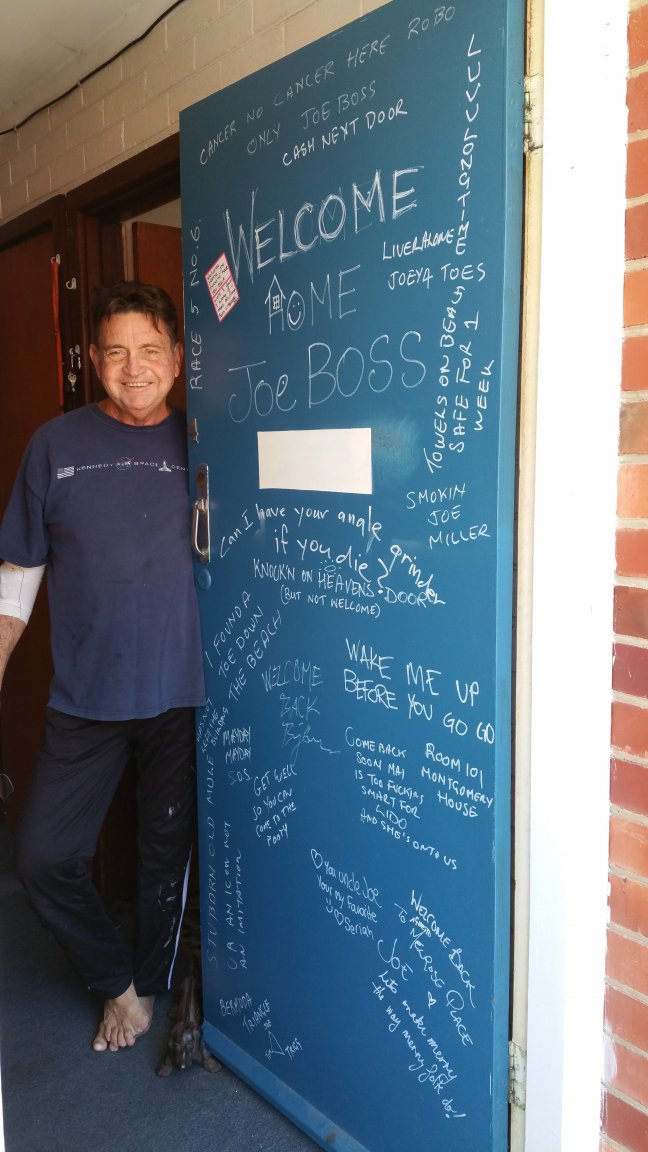 CANCER NO CANCER HERE ROBO
ONLY JOE BOSS
CASH NEXT DOOR
WELCOME
HOME
Joe BOSS
RACE 5 NO.6.
LIVER ALONE
JOEYA TOES
TOWELS ON BEDS
SAFE FOR 1
WEEK
KENNEDY SPACE CENT
SMOKIN
JOE
MILLER
Can I have your angle grinder
if you die?
KNOCK'N ON HEAVENS DOOR
(BUT NOT WELCOME)
I FOUND A
TOE DOWN
THE BEACH
WELCOME
BACK
WAKE ME UP
BEFORE YOU GO GO
MAYDAY
MAYDAY
SOS
GET WELL
SO YOU CAN
COME TO THE
POOTY
COME BACK
SOON MAJ
IS TOO FUCKING
SMART FOR
LIDO
AND SHE'S ONTO US
ROOM 101
MONTGOMERY
HOUSE
STUBBORN OLD MULE
OR AN ICON NOT
AN IMITATION
You uncle Joe
Your my Favorite
Seriah
WELCOME BACK
TO MELROSE PLACE
JOE
lets make merry
the way merry folk do!
BERMUDA
TRIANGLE